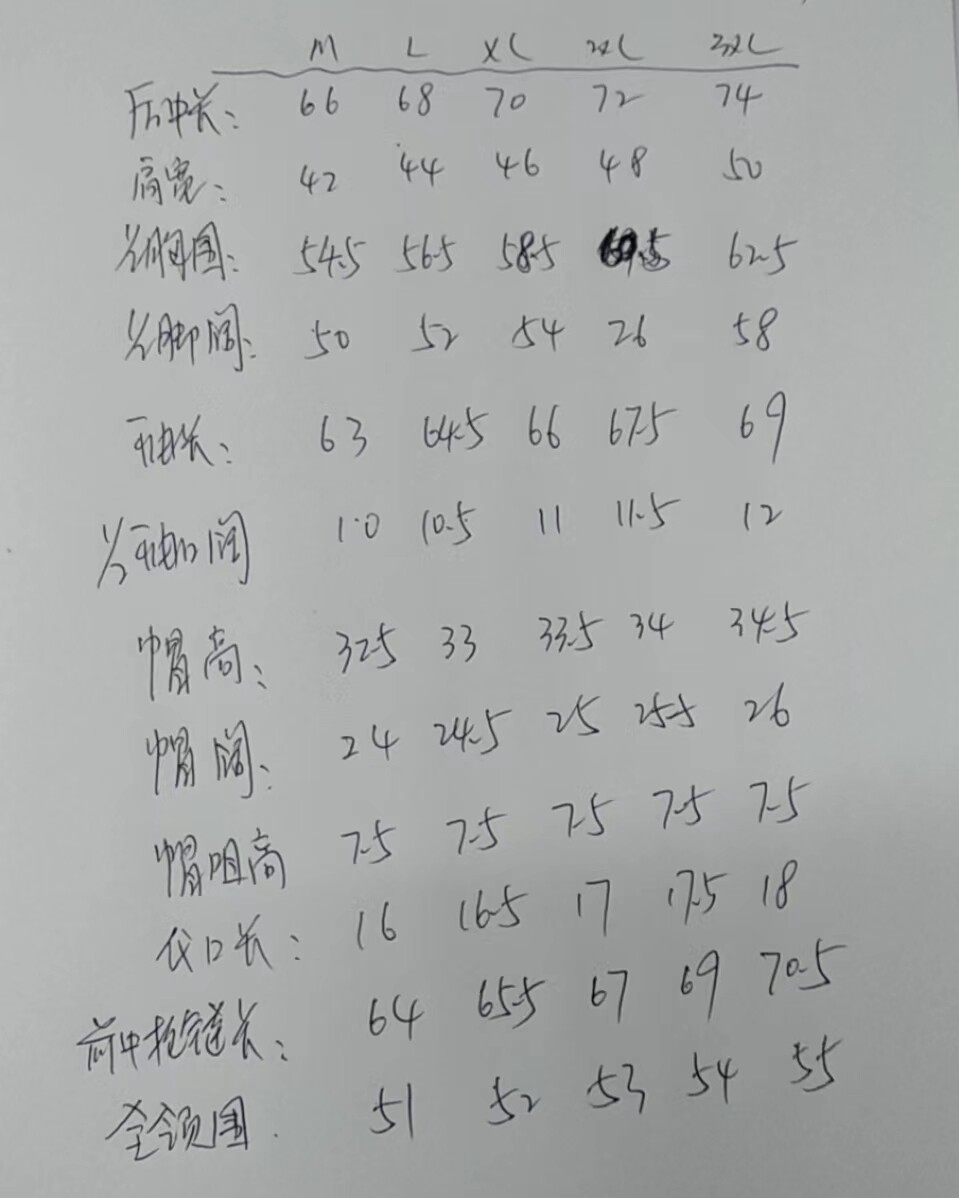 M L XL 2XL 3XL
后中长: 66 68 70 72 74
肩宽: 42 44 46 48 50
1/2胸围: 54.5 56.5 58.5 62.5
1/2脚阔: 50 52 54 26 58
袖长: 63 64.5 66 67.5 69
1/2袖口阔 1.0 10.5 11 11.5 12
帽高: 32.5 33 33.5 34 34.5
帽阔: 24 24.5 25 25.5 26
帽咀高 7.5 7.5 7.5 7.5 7.5
代口长: 16 16.5 17 17.5 18
前中拉链长: 64 65.5 67 69 70.5
全领围. 51 52 53 54 55